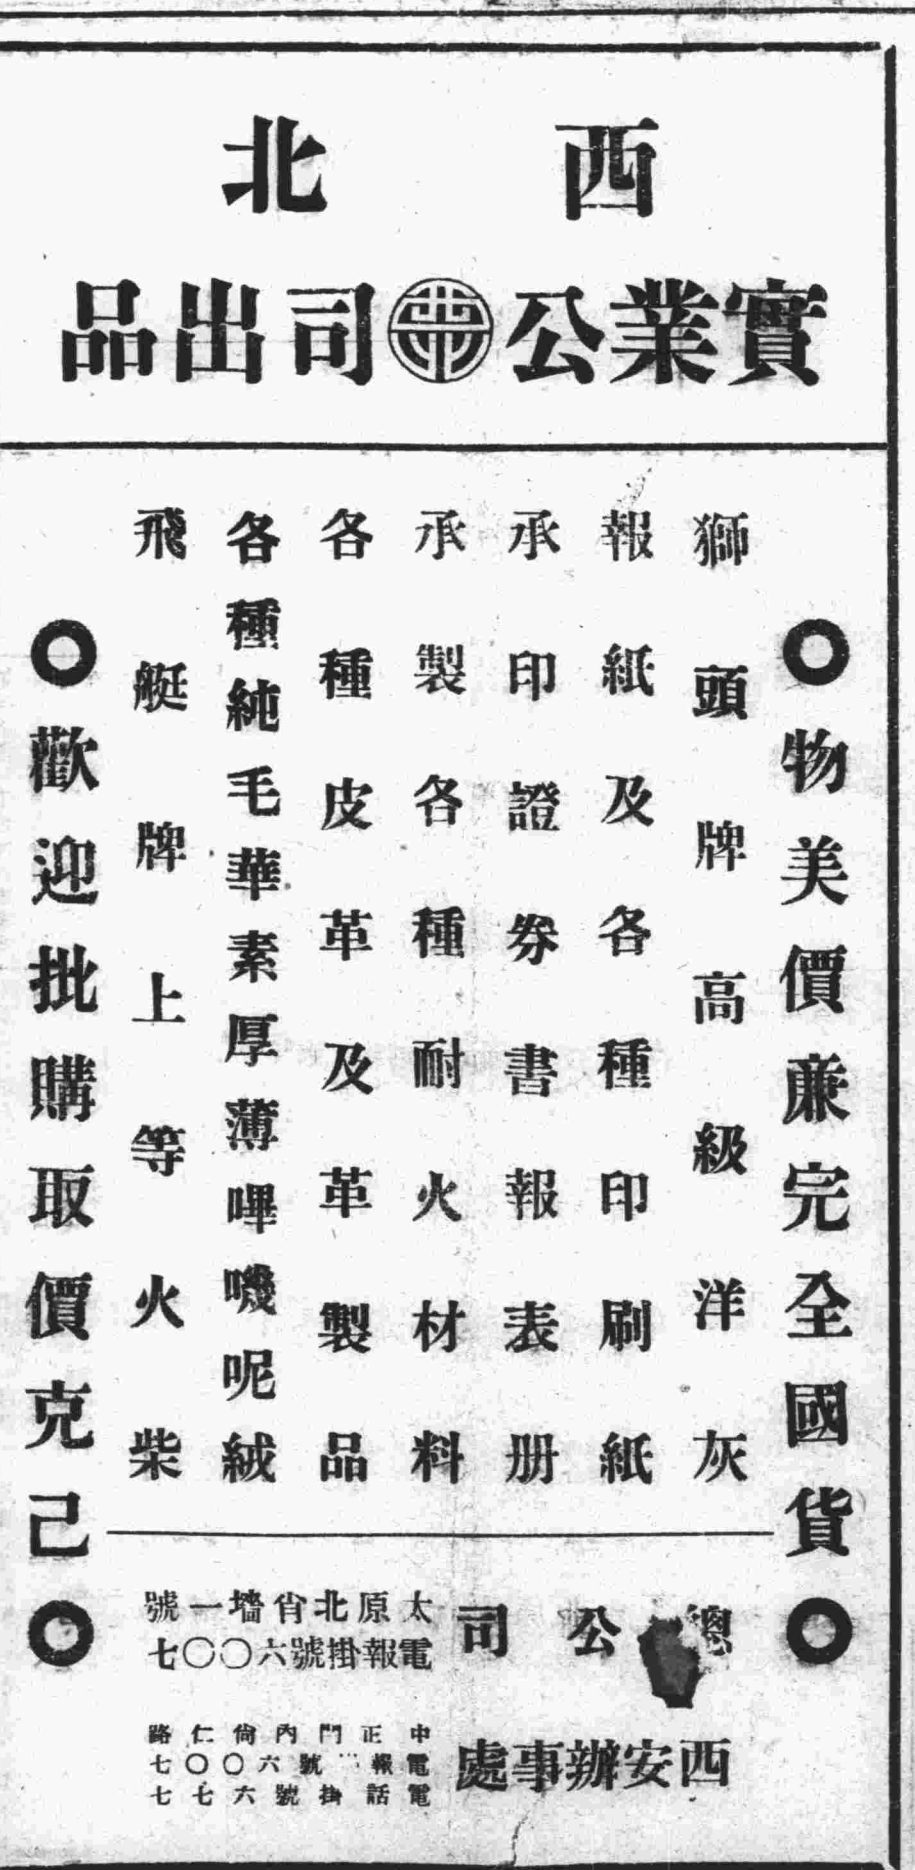 西北
實業公司出品
物美價廉完全國貨
獅頭牌高級洋灰
報紙及各種印刷紙
承印證券書報表册
承製各種耐火材料
各種皮革及革製品
各種純毛華素厚薄嗶嘰呢絨
飛艇牌上等火柴
歡迎批購取價克己
總公司
太原北肖墻一號
電報掛號六〇〇七
西安辦事處
中正門內尙仁路
電報號六〇〇七
電話掛號六七七